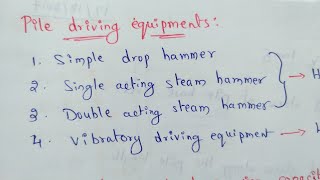 Pile driving equipments:
1. Simple drop hammer
2. Single acting steam hammer → H
3. Double acting steam hammer
4. Vibratory driving equipment →